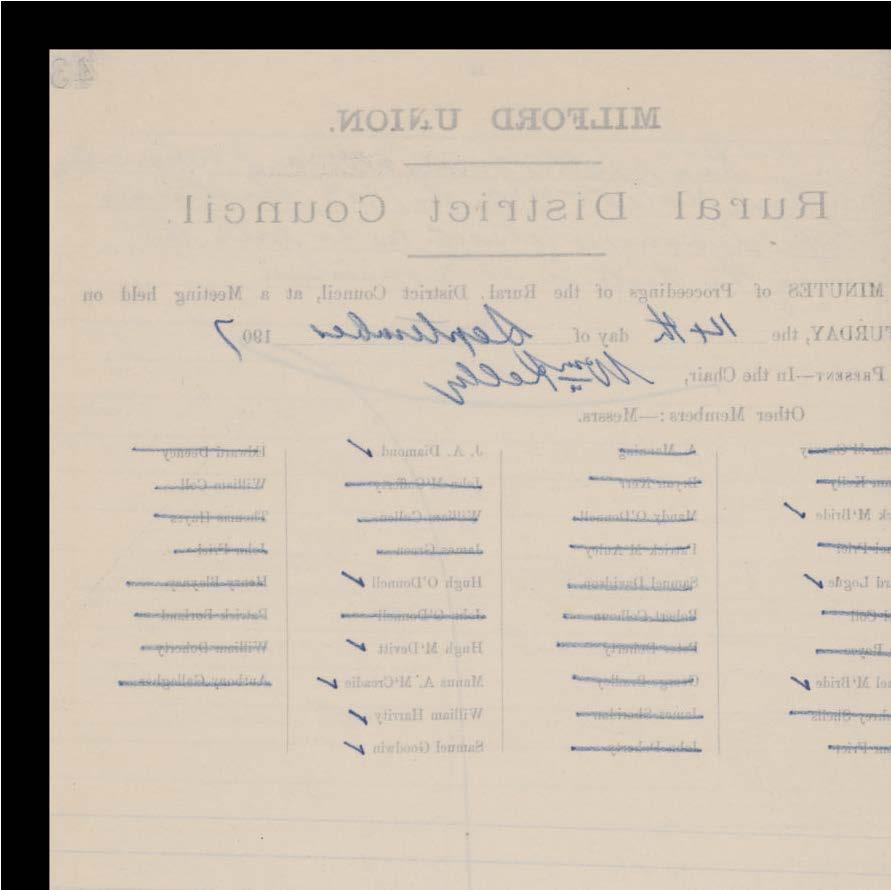 MILFORD UNION.
Rural District Council.
MINUTES of Proceedings of the Rural District Council, at a Meeting held on
URDAY, the 14th day of September 1907
PRESENT—In the Chair, Wm Kelly
Other Members:—Messrs.
A Manning J. A. Diamond Edward Deeney
Kelly Bryan Kerr John M'Cafferty William Coll
k M'Bride Mandy O'Donnell William Cullen Thomas Hayes
Friel Patrick M'Auley James Green John Friel
rd Logue Samuel Davidson Hugh O'Donnell Henry Blayney
Coll Robert Colhoun John O'Donnell Patrick Borland
Peter Doherty Hugh M'Devitt William Doherty
el M'Bride George Bradley Manus A. M'Creadie Anthony Gallagher
Shells James Sheridan William Harrity
Friel John Doherty Samuel Goodwin